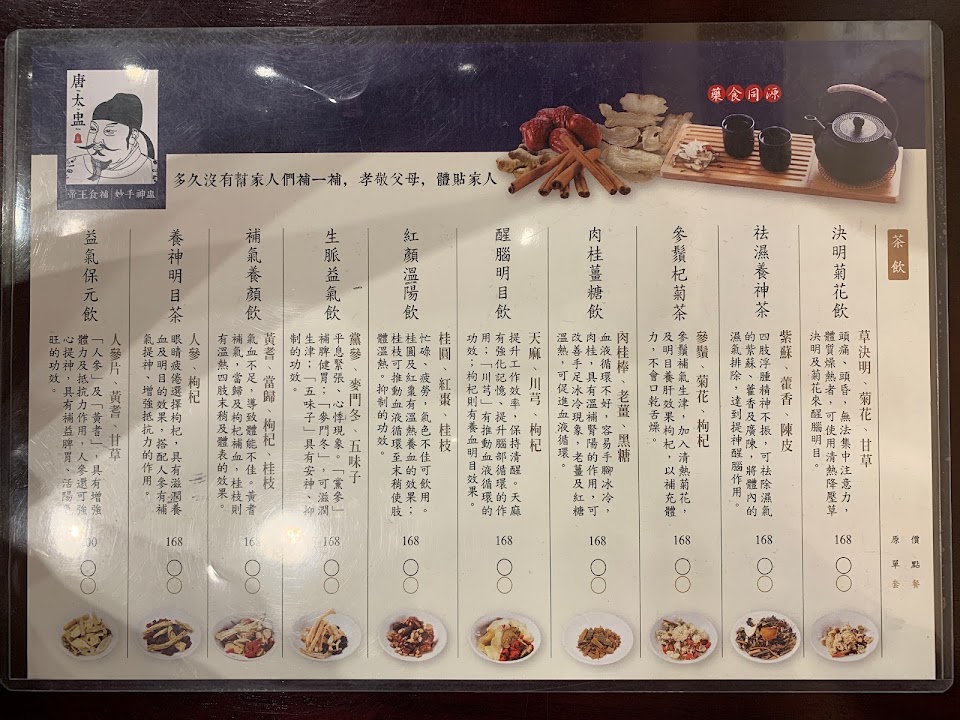 唐太盅
帝王食補 妙手神盅
藥食同源
多久沒有幫家人們補一補，孝敬父母，體貼家人
茶飲
原價
單點
套餐
決明菊花飲
草決明、菊花、甘草
頭痛、頭昏，無法集中注意力，
體質燥熱者，可使用清熱降壓草
決明及菊花來醒腦明目。
168
祛濕養神茶
紫蘇、藿香、陳皮
四肢浮腫精神不振，可祛除濕氣
的紫蘇、藿香及廣陳，將體內的
濕氣排除，達到提神醒腦作用。
168
參鬚杞菊茶
參鬚、菊花、枸杞
參鬚補氣生津，加入清熱菊花，
及明目養肝效果枸杞，以補充體
力，不會口乾舌燥。
168
肉桂薑糖飲
肉桂棒、老薑、黑糖
血液循環不好，容易手腳冰冷，
肉桂，具有溫補腎陽的作用，可
改善手足冰冷現象，老薑及紅糖
溫熱，可促進血液循環。
168
醒腦明目飲
天麻、川芎、枸杞
提升工作效率，保持清醒。天麻
有強化記憶、提升腦部循環的作
用；「川芎」有推動血液循環的
功效；枸杞則有養血明目效果。
168
紅顏溫陽飲
桂圓、紅棗、桂枝
忙碌、疲勞，氣色不佳可飲用。
桂圓及紅棗有溫熱養血的效果；
桂枝可推動血液循環至末稍使肢
體溫熱。抑制的功效。
168
生脈益氣飲
黨參、麥門冬、五味子
平息緊張、心悸現象。「黨參」
補脾健胃；「麥門冬」，可滋潤
生津；「五味子」具有安神、抑
制的功效。
168
補氣養顏飲
黃耆、當歸、枸杞、桂枝
氣血不足，導致體能不佳。黃耆
補氣，當歸及枸杞補血，桂枝則
有溫熱四肢末稍及體表的效果。
養神明目茶
人參、枸杞
眼睛疲倦選擇枸杞，具有滋潤養
血及明目的效果，搭配人參有補
氣提神，增強抵抗力的作用。
168
益氣保元飲
人參片、黃耆、甘草
「人參」及「黃耆」，具有增強
體力及抵抗力作用，人參還可強
心提神，具有補益脾胃、活陽
旺的功效。